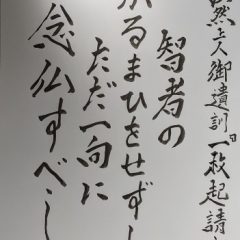 然上人御遺訓 一枚起請
智者の
ふるまひをせずし
ただ一向に
念仏すべし